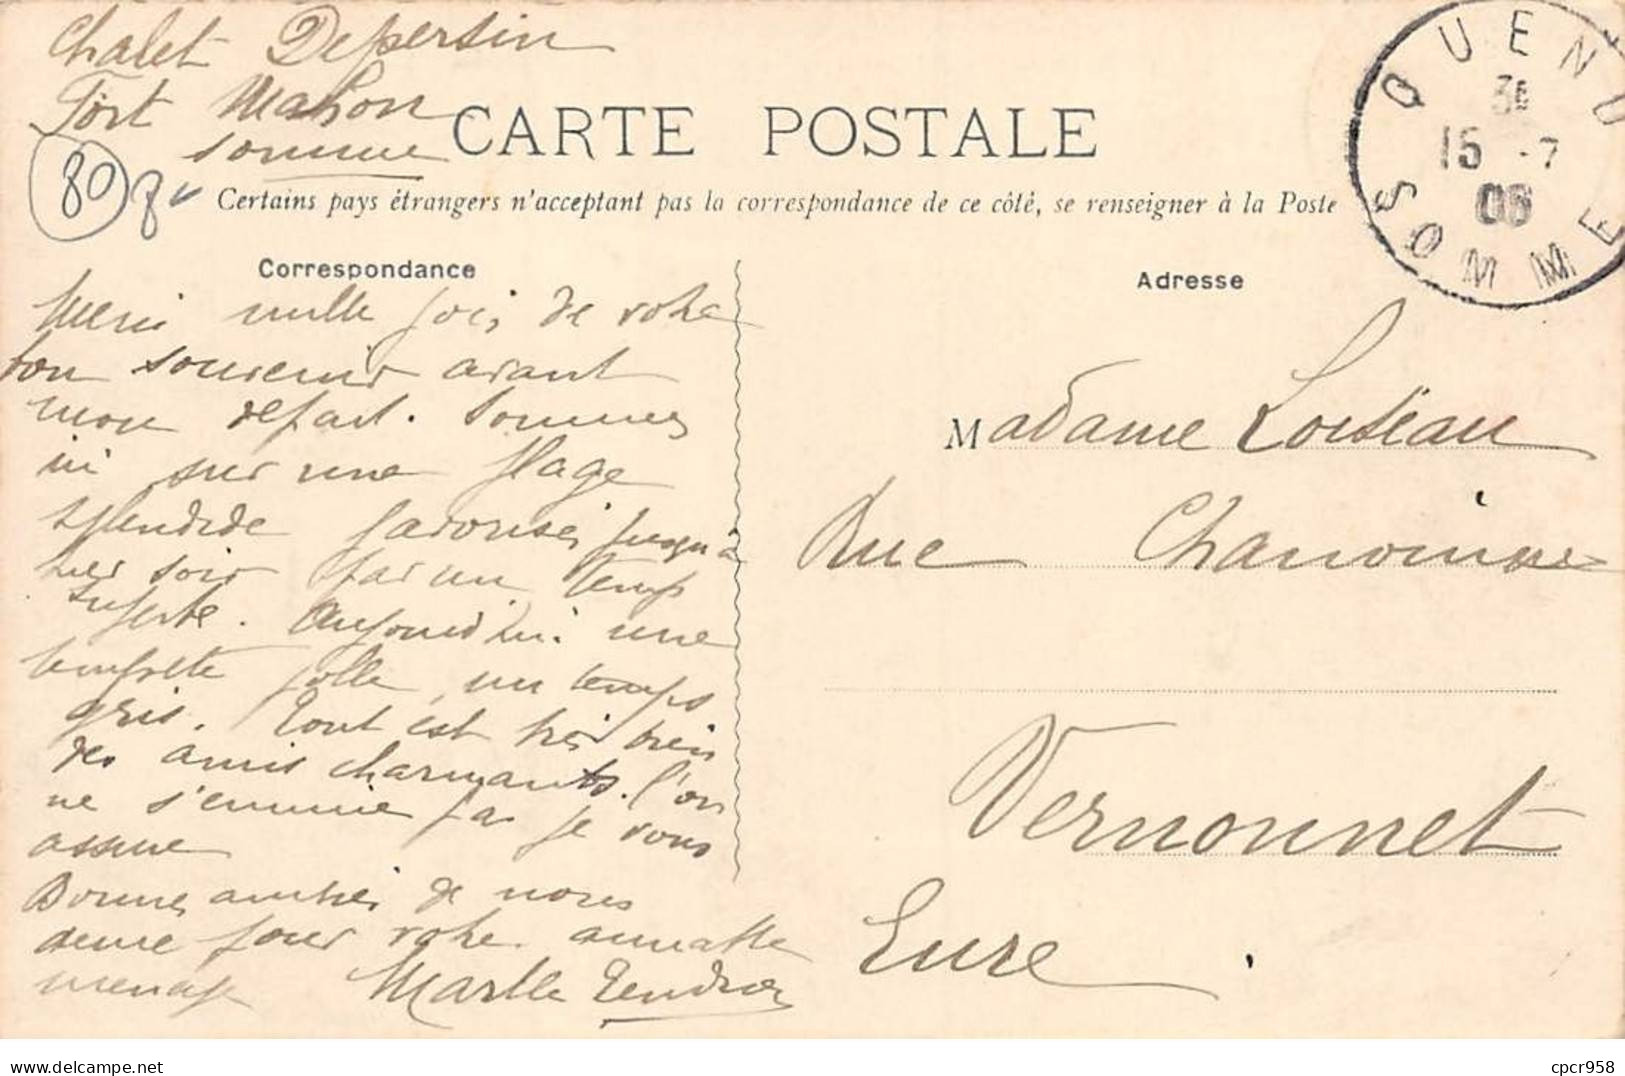 Chalet Depersin
Fort Mahon
Somme
80
CARTE POSTALE
Certains pays étrangers n'acceptant pas la correspondance de ce côté, se renseigner à la Poste
QUEND
3E
15 -7
06
SOMME
Correspondance
Merci mille fois de votre
bon souvenir avant
mon départ. Sommes
ici sur une plage
splendide favorisés jusqu'à
hier soir par un temps
superbe. Aujourd'hui une
tempête folle, un temps
gris. Tout est très bien
des amis charmants. l'on
ne s'ennuie pas je vous
assure
Bonnes amitiés de nous
deux pour votre
menage
Adresse
Madame Loiseau
Rue Chanoinesse
Vernonnet
Eure
cpcr958